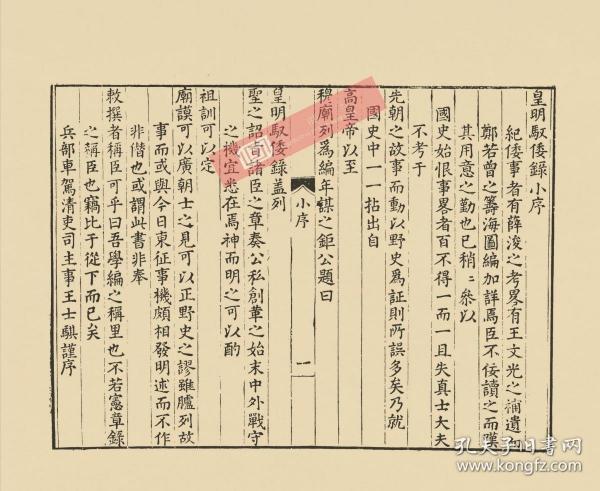 皇明馭倭錄小序
紀倭事者有薛浚之考畧有王文光之補遺
鄭若曾之籌海圖編加詳焉臣不佞讀之而嘆
其用意之勤也已稍〻叅以
國史始恨事畧者百不得一而一且失真士大夫
不考于
先朝之故事而動以野史爲証則所誤多矣乃就
國史中一一拈出自
高皇帝以至
穆廟列爲編年謀之鉅公題曰
小序
一
皇明馭倭錄蓋列
聖之詔旨諸臣之章奏公私創革之始末中外戰守
之機宜悉在焉神而明之可以酌
祖訓可以定
廟謨可以廣朝士之見可以正野史之謬雖臚列故
事而或與今日東征事機頗相發明述而不作
非僭也或謂此書非奉
敕撰者稱臣可乎曰吾學編之稱里也不若憲章錄
之稱臣也竊比于從下而已矣
兵部車駕清吏司主事王士騏謹序
孔夫子旧书网
www.kongfz.com